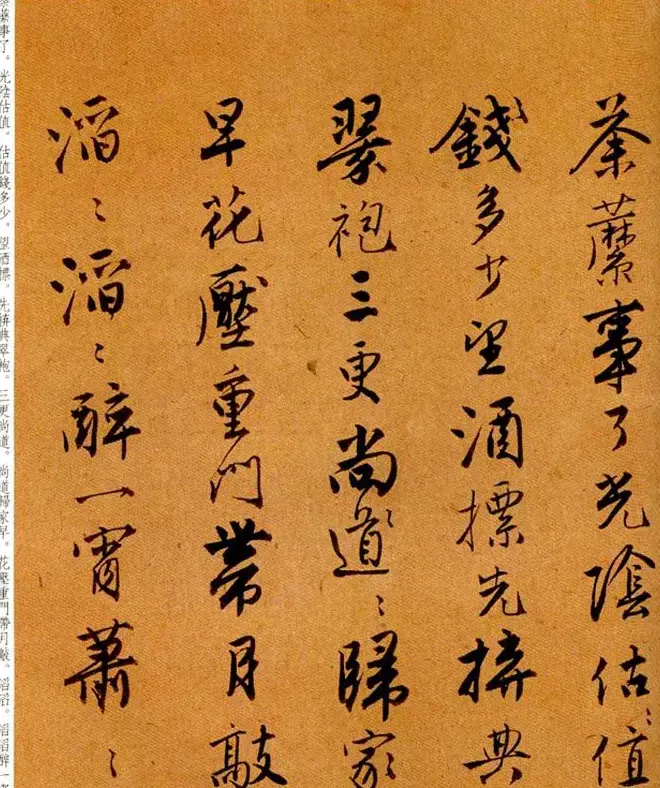 荼蘼事了光陰估〻值
〻錢多少望酒摽先拚典
翠袍三更尚〻道〻歸家
早花壓重門帶月敲
滔〻滔〻醉一宵蕭〻
事了。光陰估值。估值錢多少。望酒摽。先拚典翠袍。三更尚道。尚道歸家早。花壓重門帶月敲。滔滔。滔滔醉一